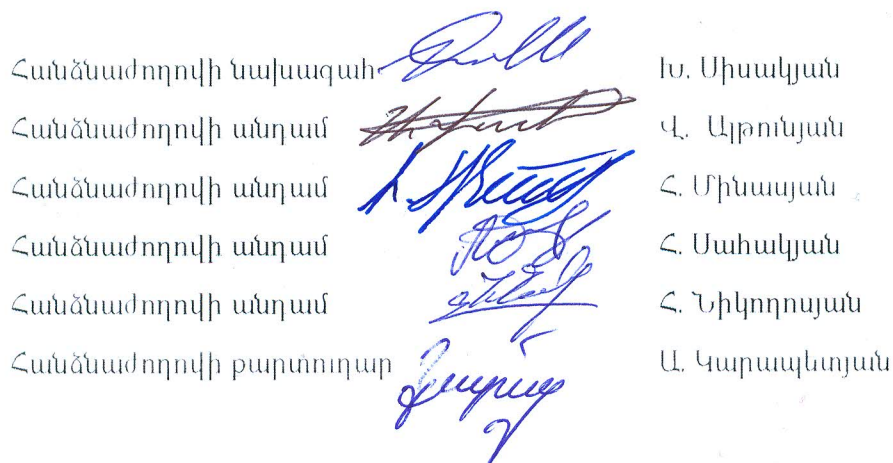 Հանձնաժողովի նախագահ Խ. Սիսակյան
Հանձնաժողովի անդամ Վ. Այթունյան
Հանձնաժողովի անդամ Հ. Մինասյան
Հանձնաժողովի անդամ Հ. Սահակյան
Հանձնաժողովի անդամ Հ. Նիկողոսյան
Հանձնաժողովի քարտուղար Ա. Կարապետյան